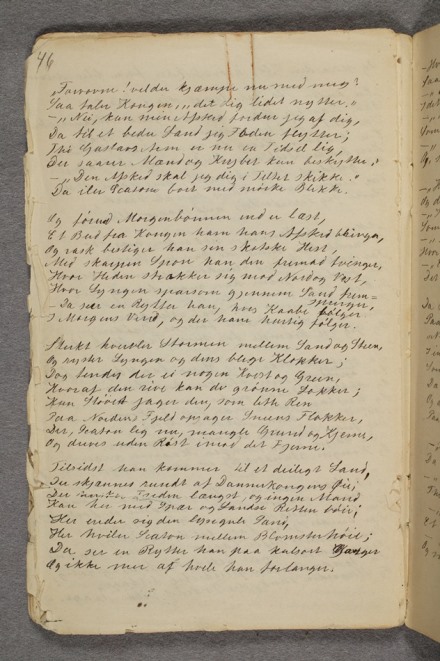 46
„Forvovne! vil du kjæmpe nu med mig?
Saa taler Kongen, „det dig lidet nytter.“
–„Nei, kun min Afsked fordrer jeg af dig,
Da til et bedre Land jeg Foden flytter;
Thi Gustavs Hjem er nu en Fedsel lig,
Der saarer Mænd og Kryber kun beskytter.“
–„Den Afsked skal jeg dig i Teltet skikke.“
Da iler Seaton bort med mørke Blikke.
Og førend Morgenbønnen end er læst,
Et Bud fra Kongen ham hans Afsked bringer,
Og rask bestiger han sin skotske Hest,
Med skarpen Spore han den fremad tvinger,
Hvor Heden strækker sig mod Nord og Vest,
Hvor Lyngen sparsom gjennem Sand frem=
springer,
– Da ser en Rytter han, hvis Kaabe bølger
I Morgens Vind, og der ham hurtig følger.
Stærkt hvirvler Stormen mellem Sand og Steen,
Og ryster Lyngen og dens blege Klokker;
Dog sender der ei nogen Kvist og Green,
Hvoraf den rive kan de grønne Lokker;
Kun Støvet jager den, som lette Reen
Paa Nordens Fjeld opjager Sneens Flokker,
Der, Seaton lig nu, mangle Grund og Hjem,
Og drives uden Røst imod det Fjerne.
Tilsidst han kommer til et deiligt Land,
Der skjønnes rundt af Dannerkongens Øie;
Der Freden længst, og ingen Mand
Kan her med Spær og Landse Retten bøie;
Her ender sig den Sand,
Her hviler Seaton mellem Blomsterhøie;
Da ser en Rytter han paa kulsort Ganger
Og ikke mer af hvile han forlanger.